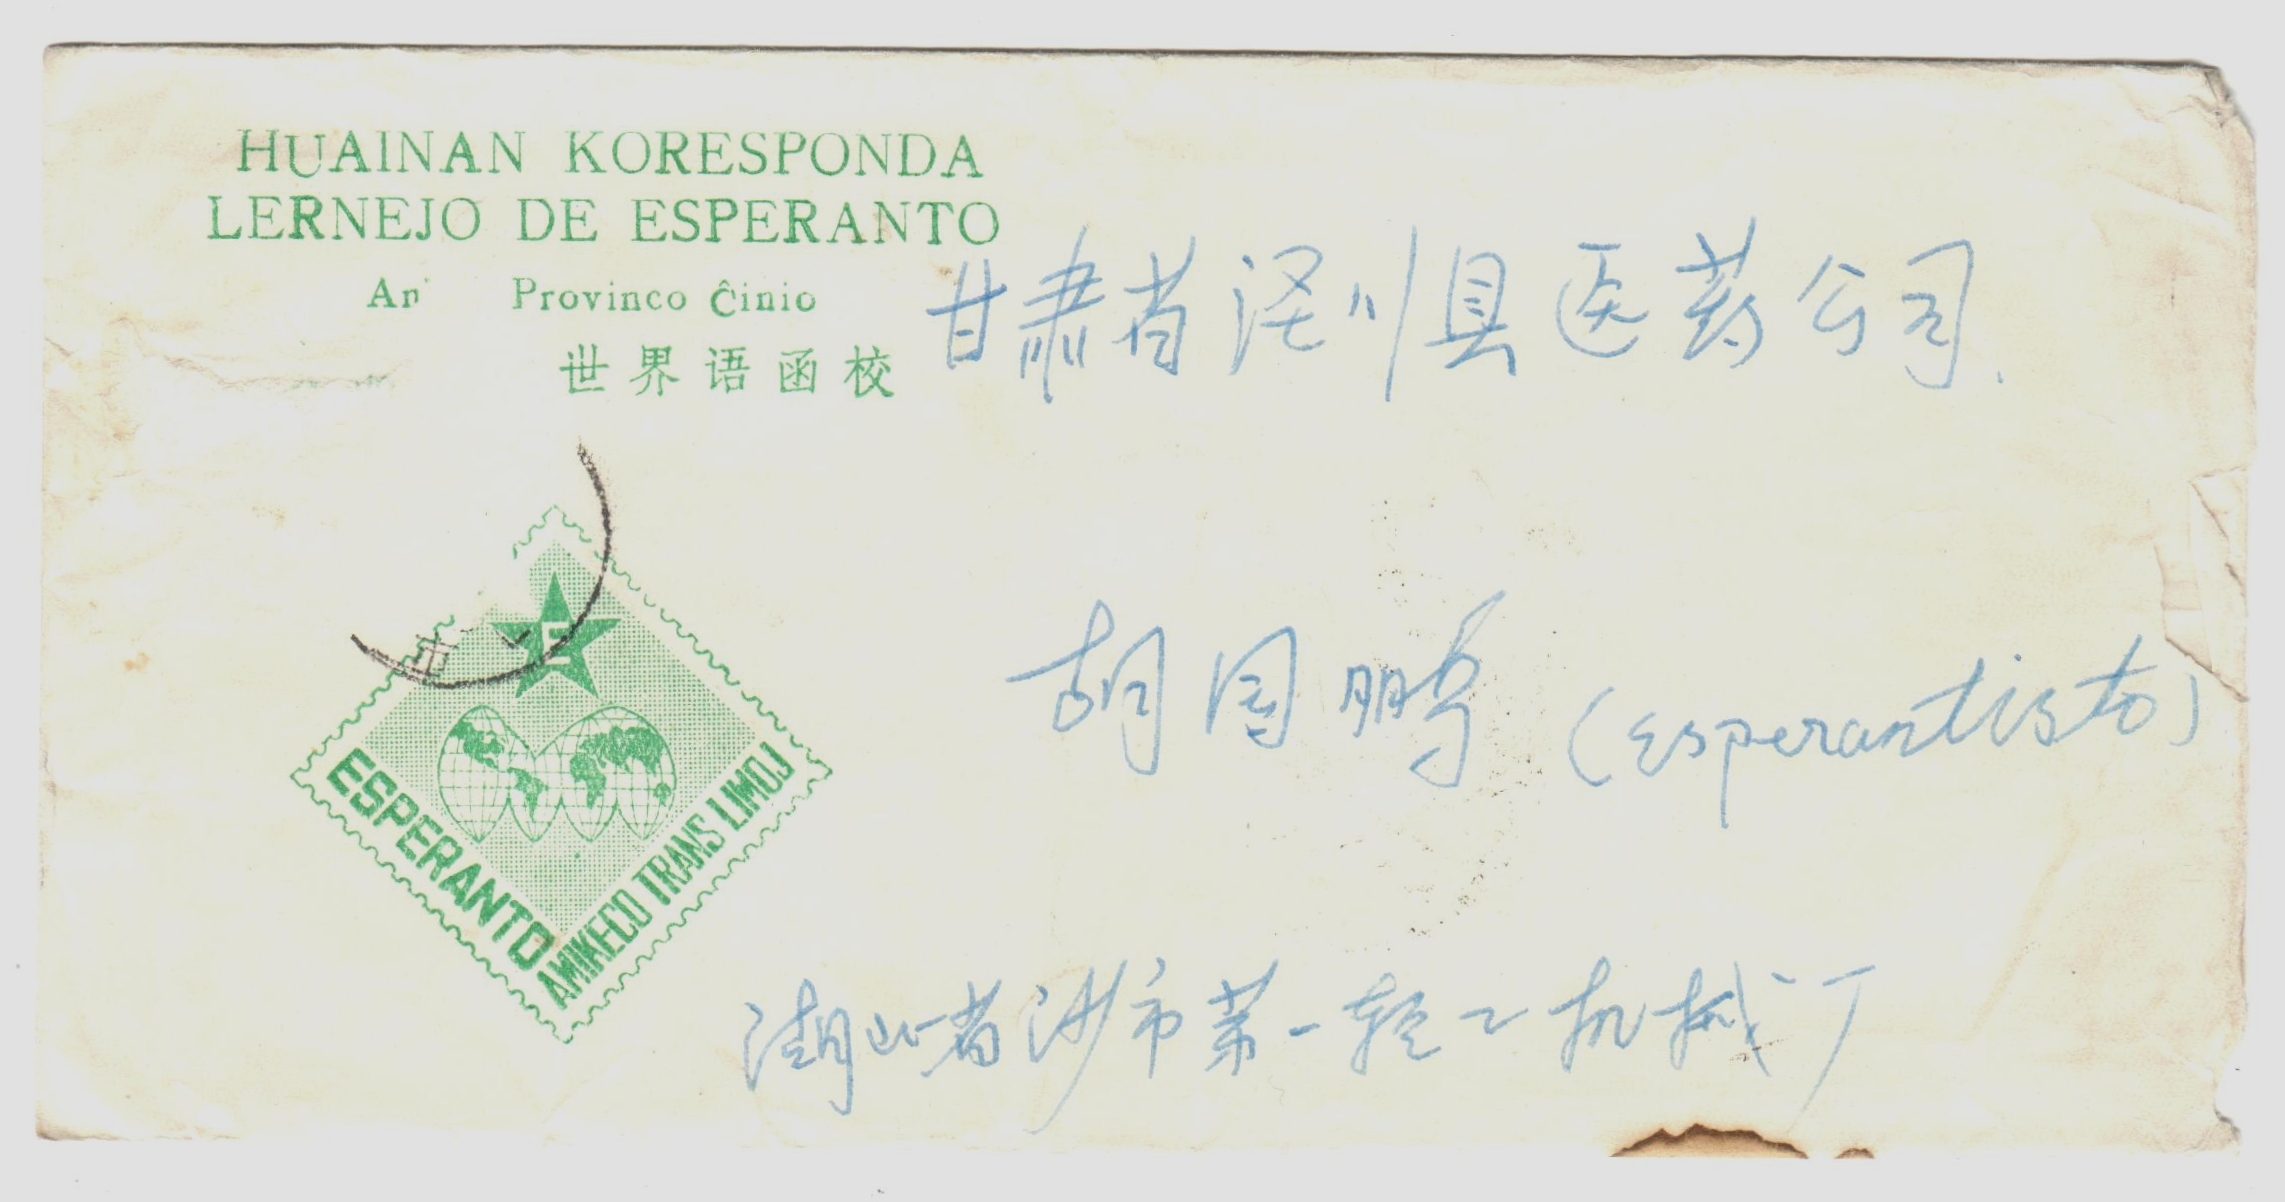 HUAINAN KORESPONDA
LERNEJO DE ESPERANTO
An Provinco Ĉinio
世界语函校
甘肃省泾川县医药公司
E
ESPERANTO
AMIKECO TRANS LIMOJ
胡国鹏 (esperantisto)
湖北省沙市第一轻工机械厂